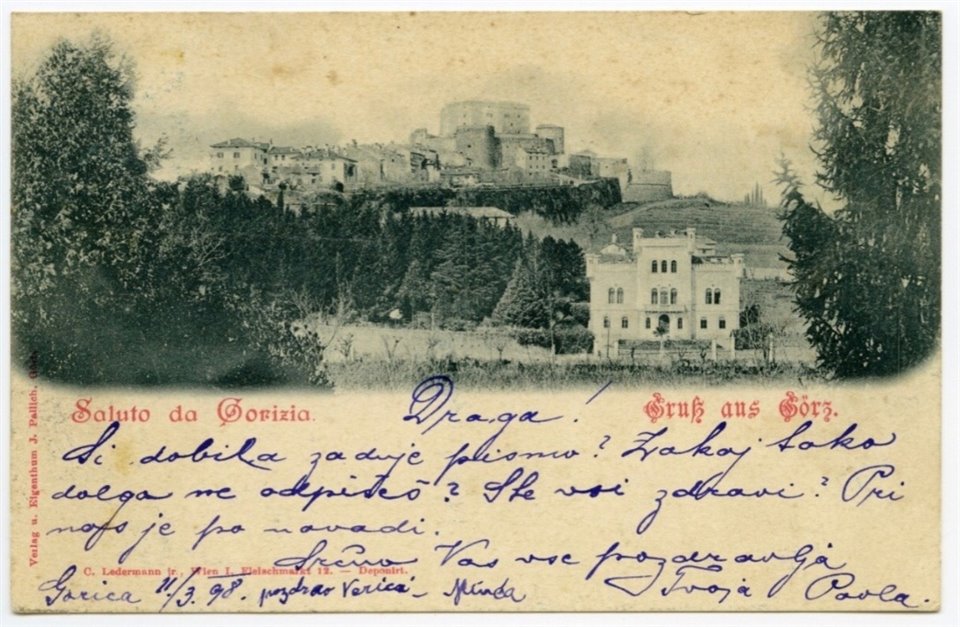 Saluto da Gorizia.
Gruß aus Görz.
Draga!
Si dobila zadnje pismo? Zakaj tako
dolgo ne odpišeš? Ste vsi zdravi? Pri
nas je po navadi.
Srčno Vas vse pozdravlja
Tvoja Pavla.
Gorica 11/3. 98. pozdrav Verica - Minca
C. Ledermann jr., Wien I. Fleischmarkt 12. — Deponirt.
Verlag u. Eigenthum J. Pallich,